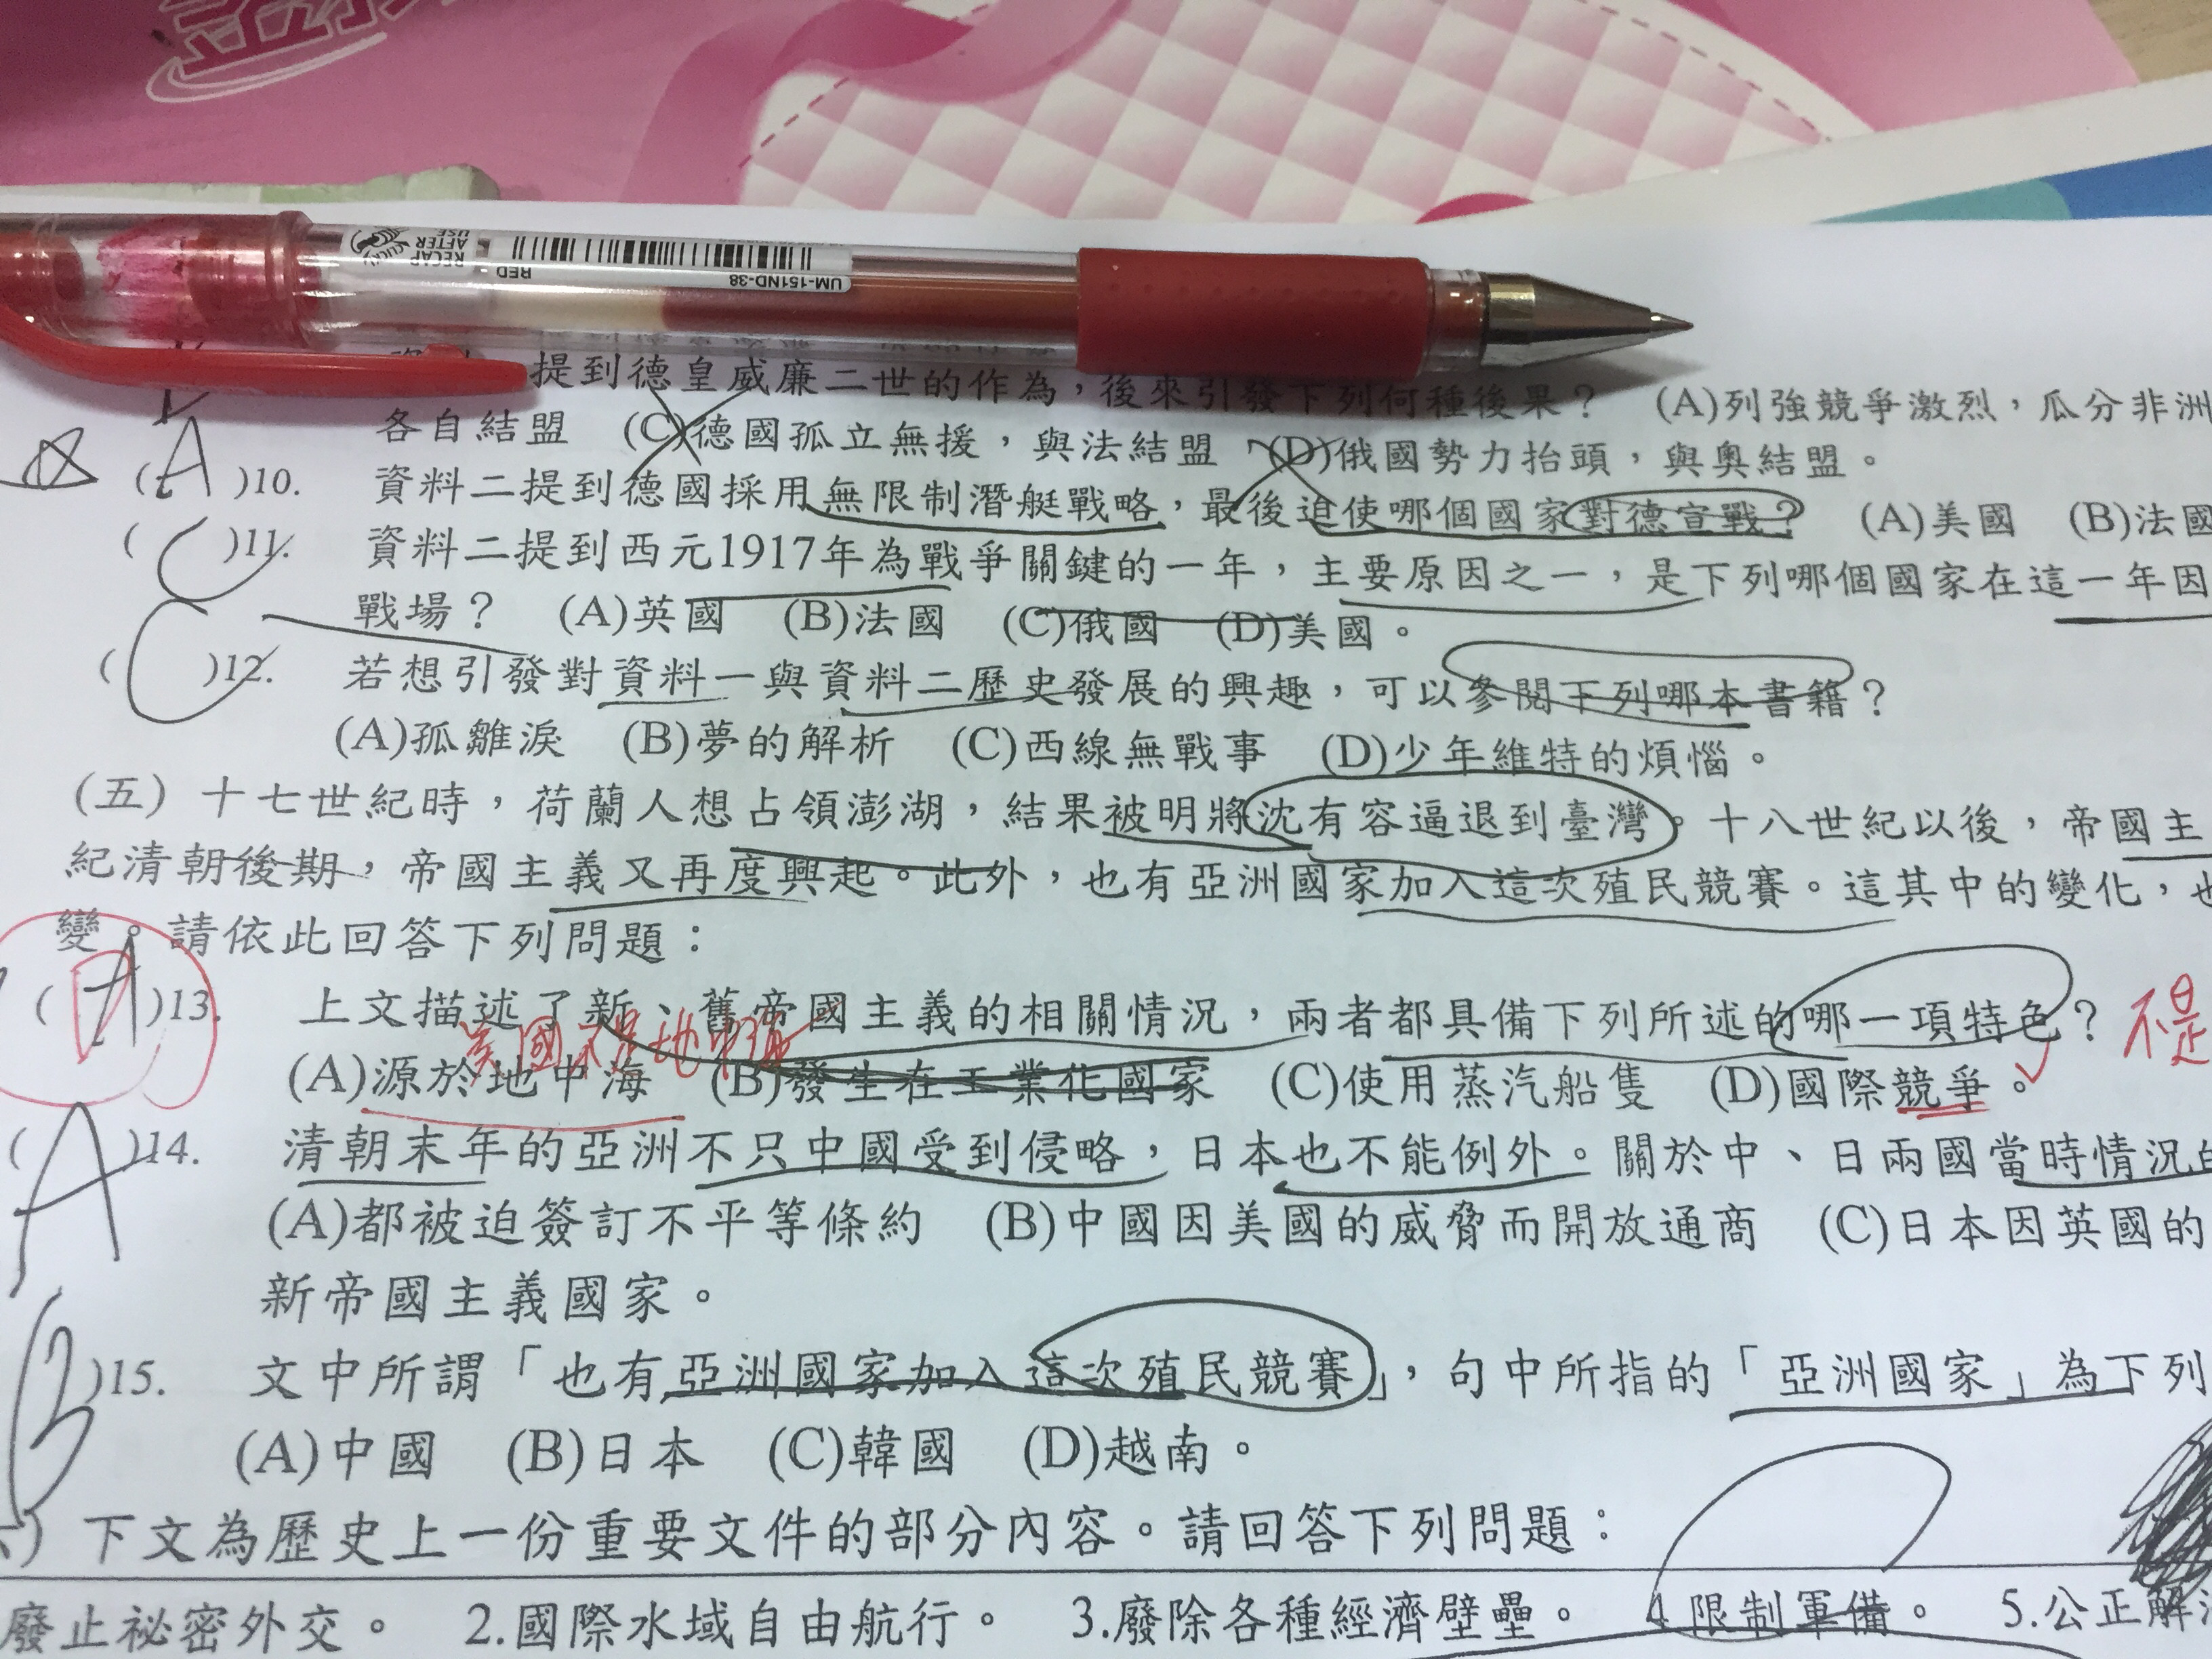 RECAP
AFTER
USE
RED
UM-151ND-38
提到德皇威廉二世的作為，後來引發下列何種後果？ (A)列強競爭激烈，瓜分非洲
各自結盟 (C)德國孤立無援，與法結盟 (D)俄國勢力抬頭，與奧結盟。
(A)10. 資料二提到德國採用無限制潛艇戰略，最後迫使哪個國家對德宣戰？ (A)美國 (B)法國
(C)11. 資料二提到西元1917年為戰爭關鍵的一年，主要原因之一，是下列哪個國家在這一年因
戰場？ (A)英國 (B)法國 (C)俄國 (D)美國。
(C)12. 若想引發對資料一與資料二歷史發展的興趣，可以參閱下列哪本書籍？
(A)孤雛淚 (B)夢的解析 (C)西線無戰事 (D)少年維特的煩惱。
(五) 十七世紀時，荷蘭人想占領澎湖，結果被明將沈有容逼退到臺灣。十八世紀以後，帝國主
紀清朝後期，帝國主義又再度興起。此外，也有亞洲國家加入這次殖民競賽。這其中的變化，也
變。請依此回答下列問題：
(A D)13. 上文描述了新、舊帝國主義的相關情況，兩者都具備下列所述的哪一項特色？ 不是
美國不是地中海
(A)源於地中海 (B)發生在工業化國家 (C)使用蒸汽船隻 (D)國際競爭。
(A)14. 清朝末年的亞洲不只中國受到侵略，日本也不能例外。關於中、日兩國當時情況的
(A)都被迫簽訂不平等條約 (B)中國因美國的威脅而開放通商 (C)日本因英國的
新帝國主義國家。
(B)15. 文中所謂「也有亞洲國家加入這次殖民競賽」，句中所指的「亞洲國家」為下列
(A)中國 (B)日本 (C)韓國 (D)越南。
) 下文為歷史上一份重要文件的部分內容。請回答下列問題：
廢止祕密外交。 2.國際水域自由航行。 3.廢除各種經濟壁壘。 4.限制軍備。 5.公正解